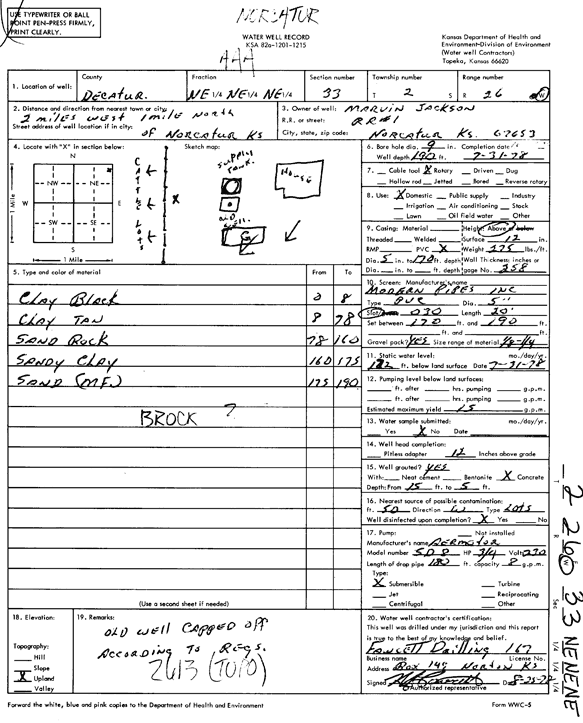 NORCATUR
USE TYPEWRITER OR BALL
POINT PEN-PRESS FIRMLY,
PRINT CLEARLY.
WATER WELL RECORD
KSA 82a-1201-1215
Kansas Department of Health and
Environment-Division of Environment
(Water well Contractors)
Topeka, Kansas 66620
AAA
1. Location of well: County DECATUR. Fraction NE 1/4 NE 1/4 NE 1/4 Section number 33 Township number T 2 S Range number R 26 W
2. Distance and direction from nearest town or city: 2 miles west 1 mile North
Street address of well location if in city: of NORCATUR KS
3. Owner of well: MARVIN JACKSON
R.R. or street: RR#1
City, state, zip code: NORCATUR KS. 67653
4. Locate with "X" in section below:
Sketch map:
N
NW NE
W E
SW SE
S
1 Mile
1 Mile
CATTLE LOTS
X
SUPPLY TANK.
HOUSE
OLD WELL.
G
5. Type and color of material From To
CLAY Black 0 8
CLAY TAN 8 78
SAND ROCK 78 160
SANDY CLAY 160 175
SAND (MF.) 175 190
BROCK ?
(Use a second sheet if needed)
6. Bore hole dia. 9 in. Completion date
Well depth 190 ft. 7-31-78
7. Cable tool X Rotary Driven Dug
Hollow rod Jetted Bored Reverse rotary
8. Use: X Domestic Public supply Industry
Irrigation Air conditioning Stock
Lawn Oil field water Other
9. Casing: Material Height: Above or below
Threaded Welded Surface 12 in.
RMP PVC X Weight 275 lbs./ft.
Dia. 5 in. to 170 ft. depth Wall Thickness: inches or
Dia. in. to ft. depth gage No. 258
10. Screen: Manufacturer's name
MODERN PIPES INC
Type PVC Dia. 5"
Slot/gauze 030 Length 20'
Set between 170 ft. and 190 ft.
ft. and ft.
Gravel pack? YES Size range of material 1/8-1/4
11. Static water level: mo./day/yr.
122 ft. below land surface Date 7-31-78
12. Pumping level below land surfaces:
ft. after hrs. pumping g.p.m.
ft. after hrs. pumping g.p.m.
Estimated maximum yield 15 g.p.m.
13. Water sample submitted: mo./day/yr.
Yes X No Date
14. Well head completion:
Pitless adapter 12 Inches above grade
15. Well grouted? YES
With: Neat cement Bentonite X Concrete
Depth: From 15 ft. to 5 ft.
16. Nearest source of possible contamination:
ft. 50 Direction W Type LOTS
Well disinfected upon completion? X Yes No
17. Pump: Not installed
Manufacturer's name AERMOTOR
Model number SD8 HP 3/4 Volts 230
Length of drop pipe 180 ft. capacity 8 g.p.m.
Type:
X Submersible Turbine
Jet Reciprocating
Centrifugal Other
18. Elevation:
Topography:
Hill
Slope
X Upland
Valley
19. Remarks:
OLD WELL CAPPED OFF
ACCORDING TO REGS.
2613 (TOPO)
20. Water well contractor's certification:
This well was drilled under my jurisdiction and this report
is true to the best of my knowledge and belief.
FAWCETT Drilling 167
Business name License No.
Address Box 145 NORTON KS
Signed Date 8-25-78
Authorized representative
Forward the white, blue and pink copies to the Department of Health and Environment
Form WWC-5
T 2 R 26 W Sec 33 1/4 1/4 1/4 NENENE